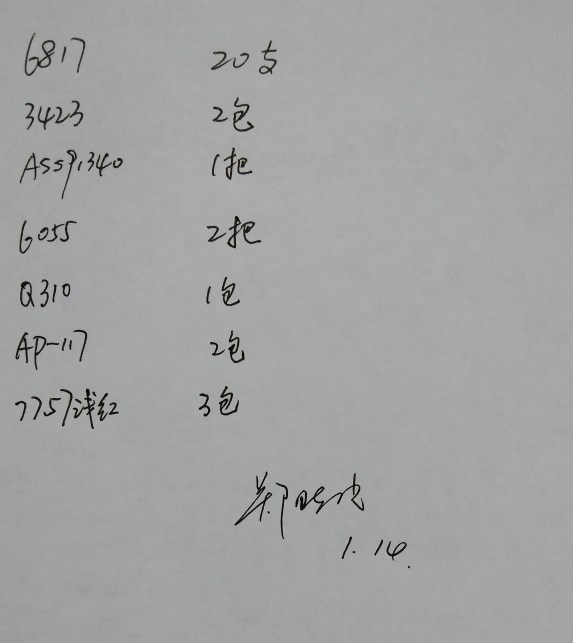 6817 20支
3423 2包
ASS91340 1把
6055 2把
Q310 1包
AP-117 2包
7757浅红 3包
郑
1.14.